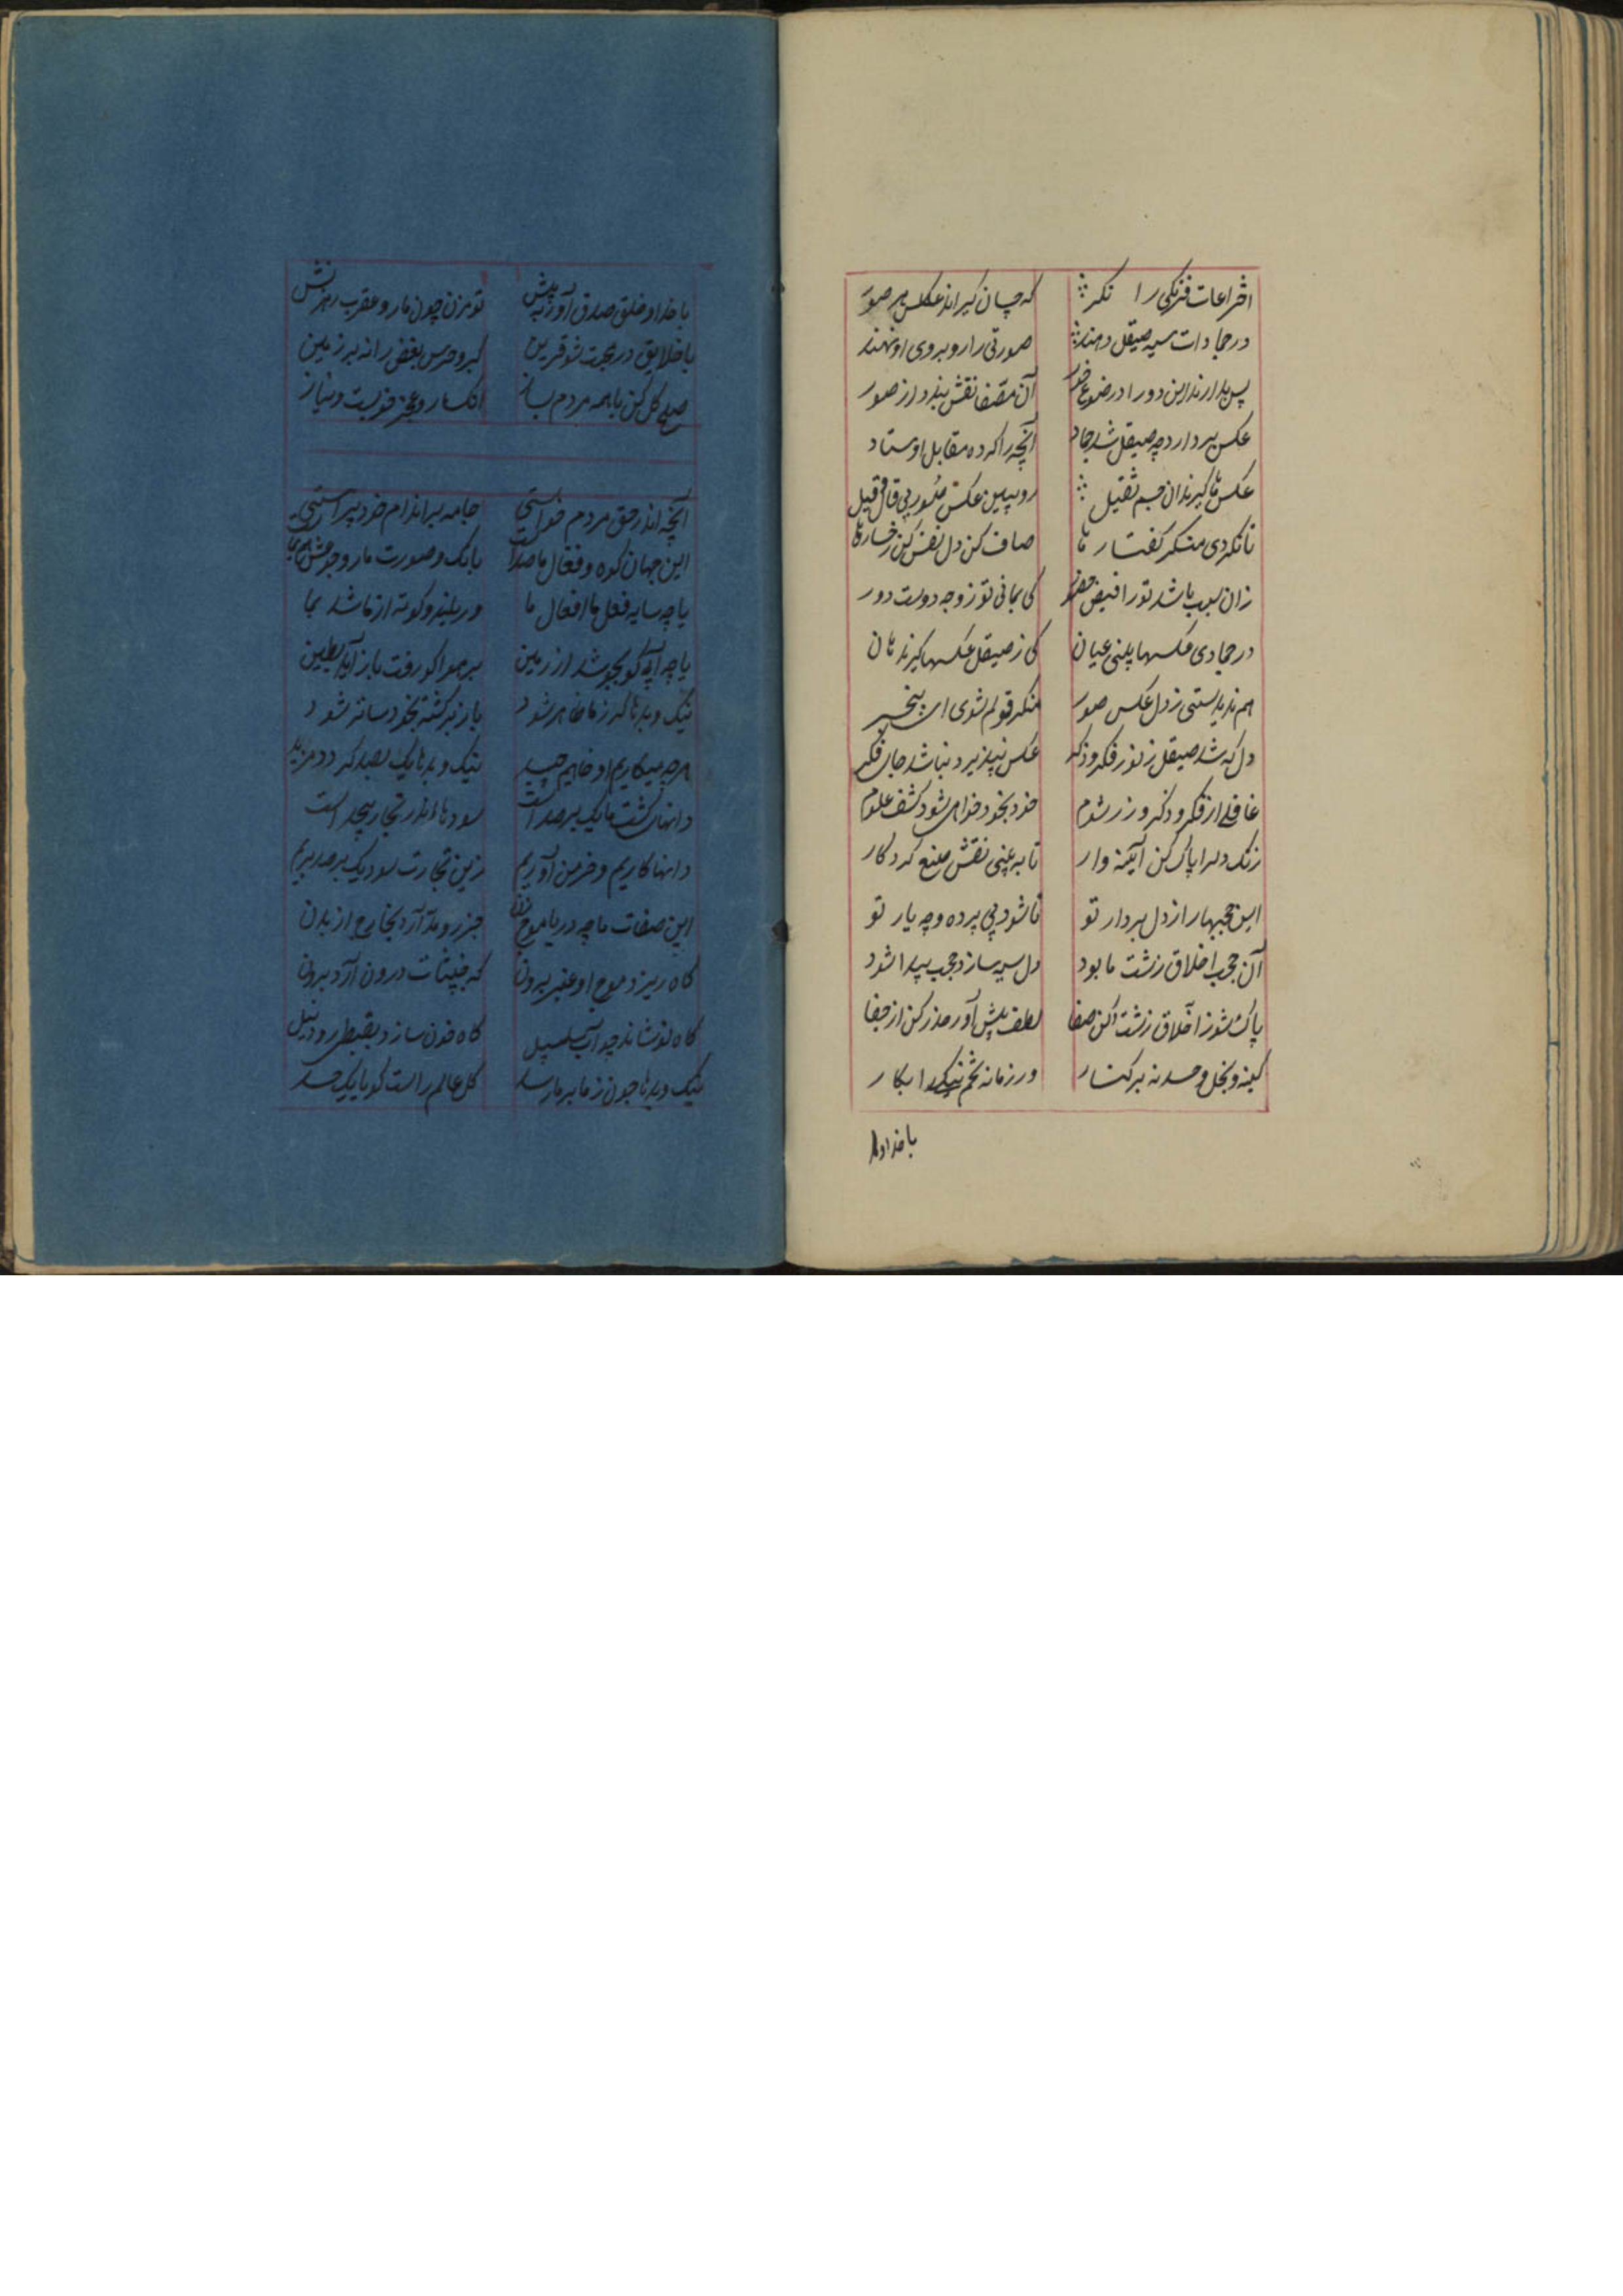 اختراعات فرنگی را نگر که چسان گیراند عکس هر صور
در جمادات سیه صیقل دهند صورتی را روبروی او نهند
پس بدارند این دو را در ضوء خور آن مصفا نقش بندد از صور
عکس بردارد چه صیقل شد جماد آنچه را کرده مقابل اوستاد
عکس ها گیرند از جسم ثقیل روببین عکس بی قال و قیل
تا نگردی منکر گفتار ما صاف کن دل نقش کن رخسارها
زان سبب باشد تو را فیض حضور کی بمانی تو ز وجه دوست دور
در جمادی عکسها بینی عیان کی ز صیقل عکسها گیرند هان
هم ندیدستی ز دل عکس صور منکر قولم شوی ای بیخبر
دل که شد صیقل ز نور فکر و ذکر عکس نپذیرد نباشد جای فکر
غافلی از فکر و ذکر و زر شوم خود بخود خواهی شود کشف علوم
زنگ دلرا پاک کن آیینه وار تا به بینی نقش صنع کردگار
این حجبها را ز دل بردار تو تا شود بی پرده وجه یار تو
آن حجب اخلاق زشت ما بود دل سیه سازد حجب پیدا شود
پاک شو ز اخلاق زشت کن صفا لطف پیش آور حذر کن از جفا
کینه و بخل و حسد نه بر کنار در زمانه تخم نیکی را بکار
با خدا و
با خدا و خلق صدق آور به پیش تو مزن چون مار و عقرب زهر نیش
با خلایق در محبت شو قرین کبر و حرص بغض را نه بر زمین
صلح کل کن با همه مردم بساز انکسار و عجز خوبست و نیاز
آنچه اندر حق مردم خواستی جامه بر اندام خود پیراستی
این جهان کوه و فعل ما صداست بانک و صورت
یا چه سایه فعل ها افعال ما ور بلند و کوته از ما شد بما
یا چه آبی کو بجو شد از زمین بر هوا کو رفت باز آید بطین
نیک و بدها کز ما ظاهر شود باز برگشته بخود سائر شود
هرچه میکاریم او خواهیم چید نیک و بدها یک بصد گردد مزید
دانهای کشت ما یک بر صد است سودها اندر تجار بیحد است
دانها کاریم و خرمن آوریم زین تجارت سود یک بر صد بریم
این صفات ما چه دریا موج زن جزر و مد آرد بخارج از بدن
گاه ریزد موج او عنبر برون که خبیثات درون آرد برون
گاه نوشاند چو آب سلسبیل گاه خون سازد بقبطی رود نیل
نیک و بدها چون ز ما بر ما رسد کل عالم راست گویا یک جسد